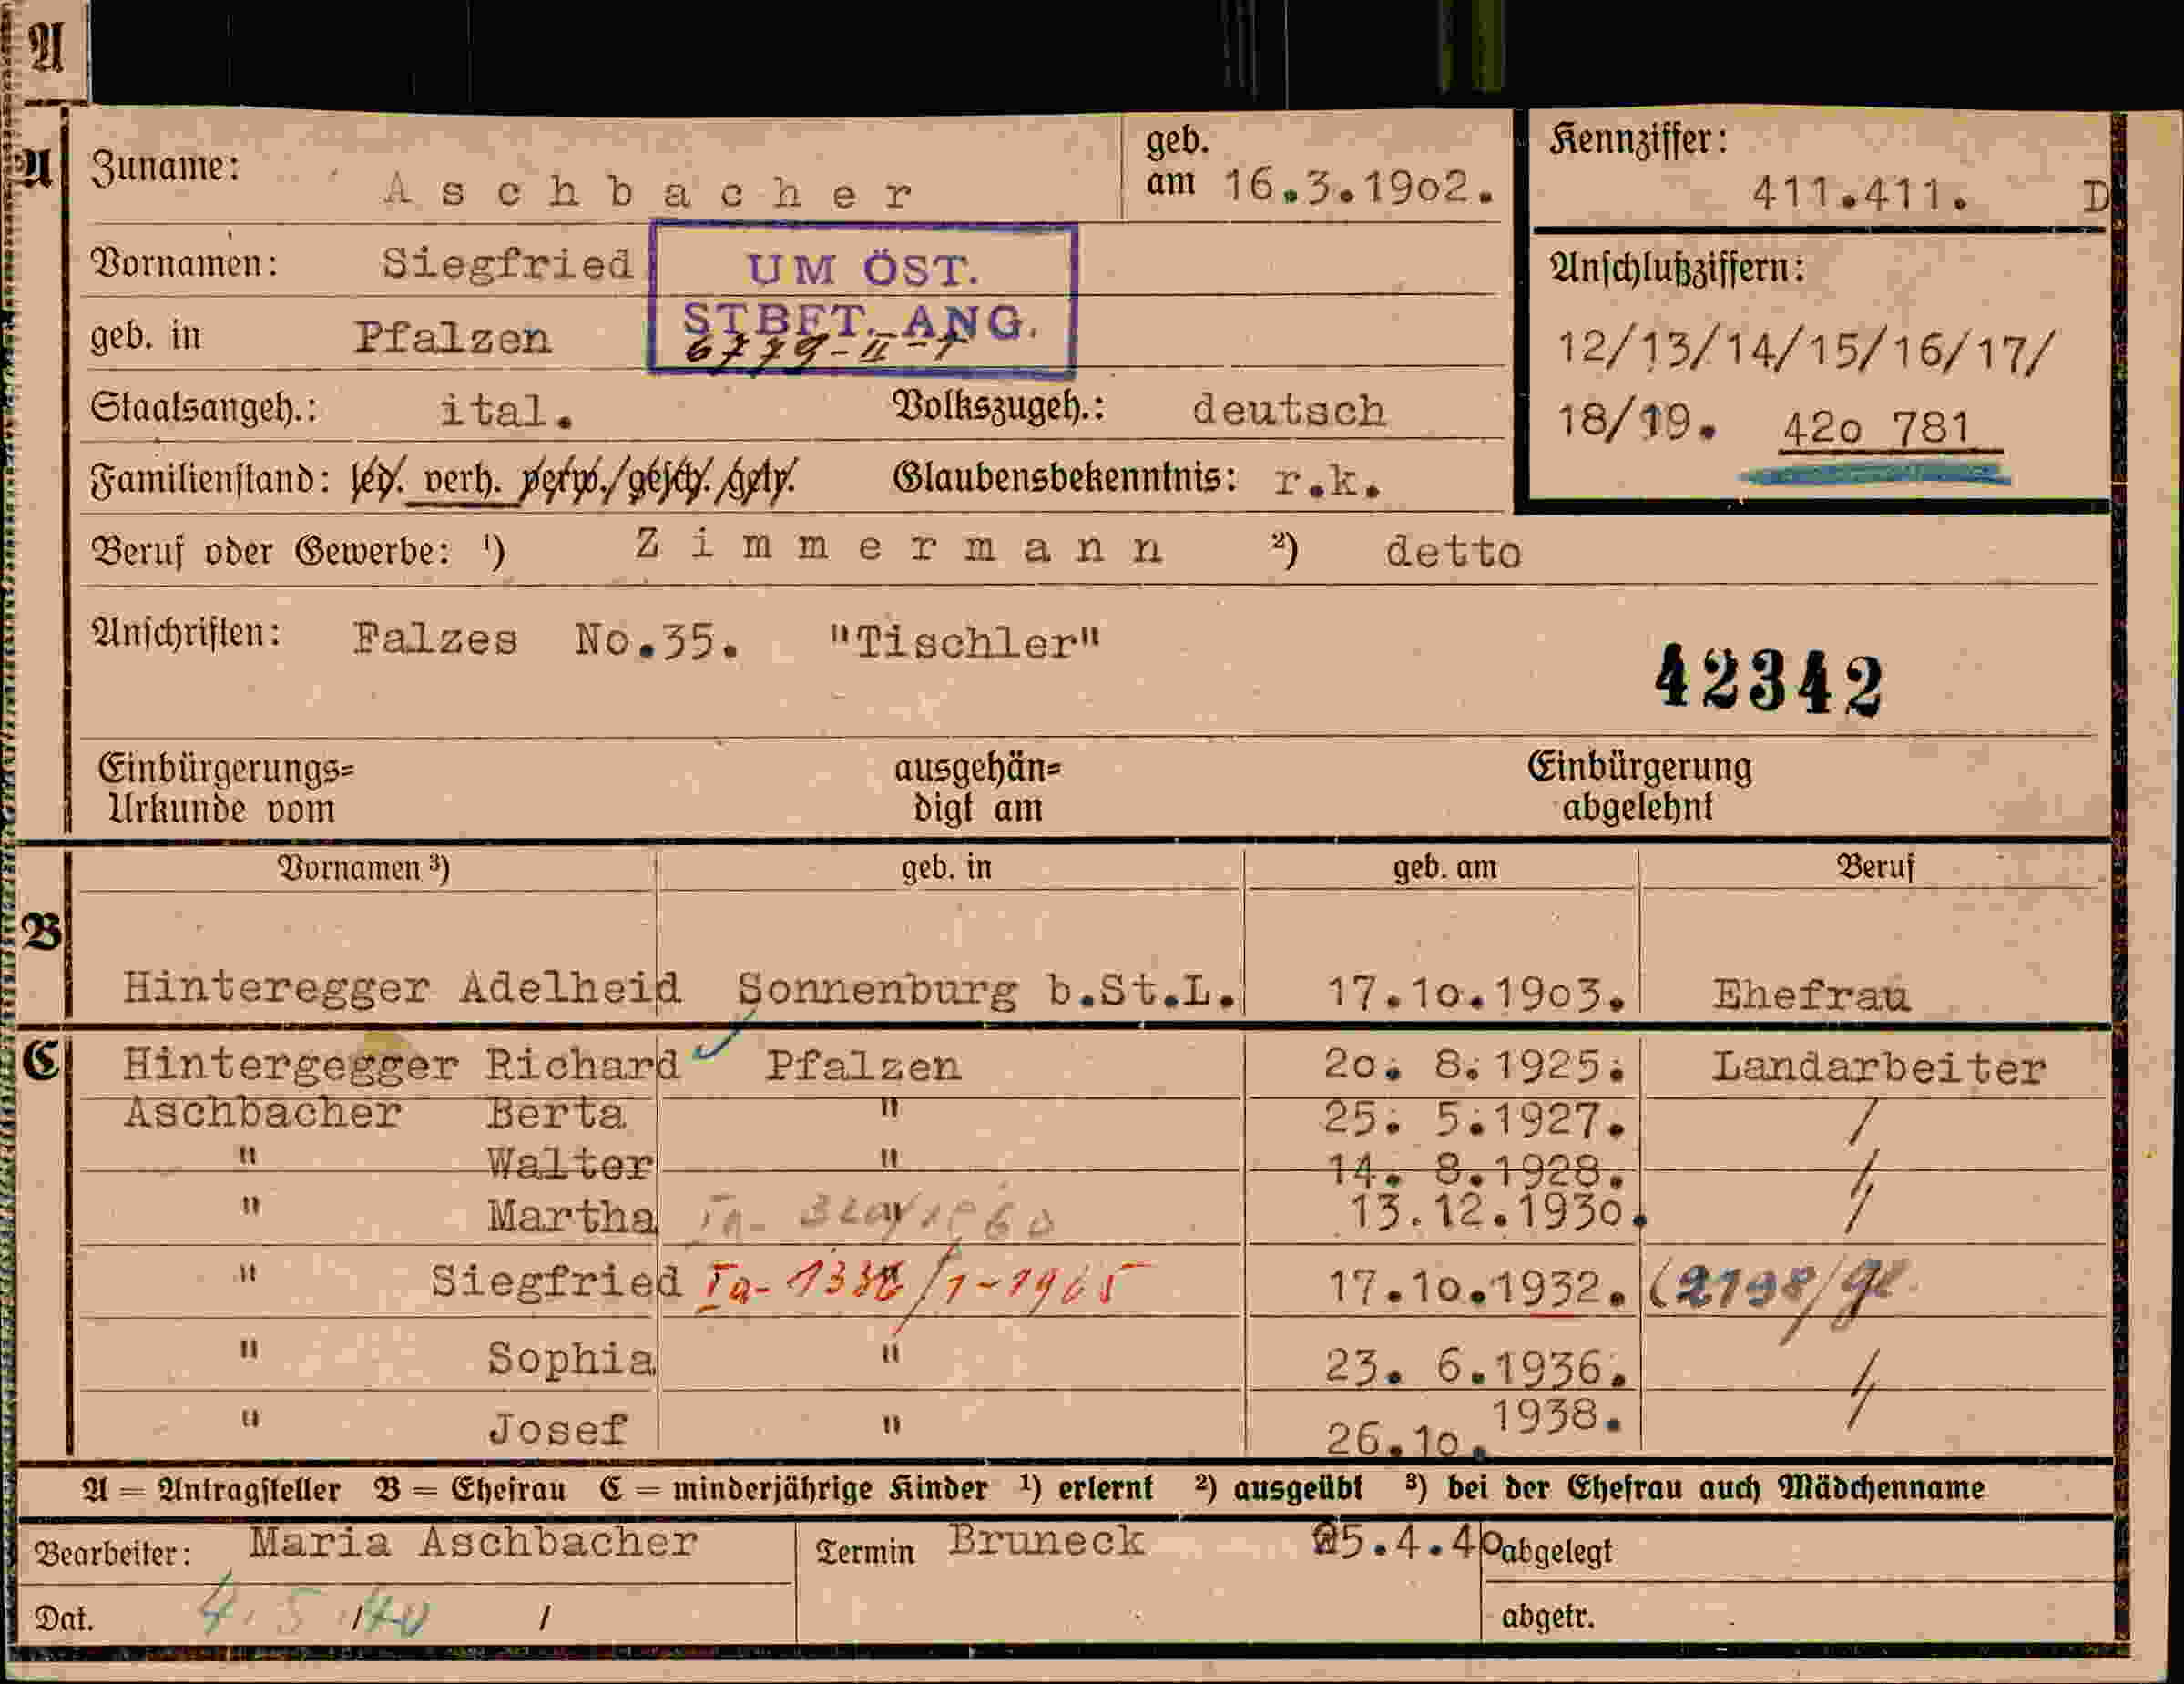 A
A
Zuname: Aschbacher geb. am 16.3.1902.
Kennziffer: 411.411. D
Vornamen: Siegfried
UM ÖST.
STBFT. ANG.
6779-II-1
Anschlußziffern:
12/13/14/15/16/17/
18/19. 420 781
geb. in Pfalzen
Staatsangeh.: ital. Volkszugeh.: deutsch
Familienstand: led. verh. verw./gesch./getr. Glaubensbekenntnis: r.k.
Beruf oder Gewerbe: ¹) Zimmermann ²) detto
Anschriften: Falzes No.35. "Tischler"
42342
Einbürgerungs= Urkunde vom
ausgehän= digt am
Einbürgerung abgelehnt
Vornamen ³) geb. in geb. am Beruf
B
Hinteregger Adelheid Sonnenburg b.St.L. 17.10.1903. Ehefrau
C
Hintergegger Richard Pfalzen 20. 8.1925. Landarbeiter
Aschbacher Berta " 25. 5.1927. /
" Walter " 14. 8.1928. /
" Martha 13.12.1930. /
" Siegfried Ia- 1338/1-1965 17.10.1932. (2198/
" Sophia " 23. 6.1936. /
" Josef " 26.10.1938. /
A = Antragsteller B = Ehefrau C = minderjährige Kinder ¹) erlernt ²) ausgeübt ³) bei der Ehefrau auch Mädchenname
Bearbeiter: Maria Aschbacher Termin Bruneck 25.4.40 abgelegt
Dat. 4. 5. /40 / abgetr.